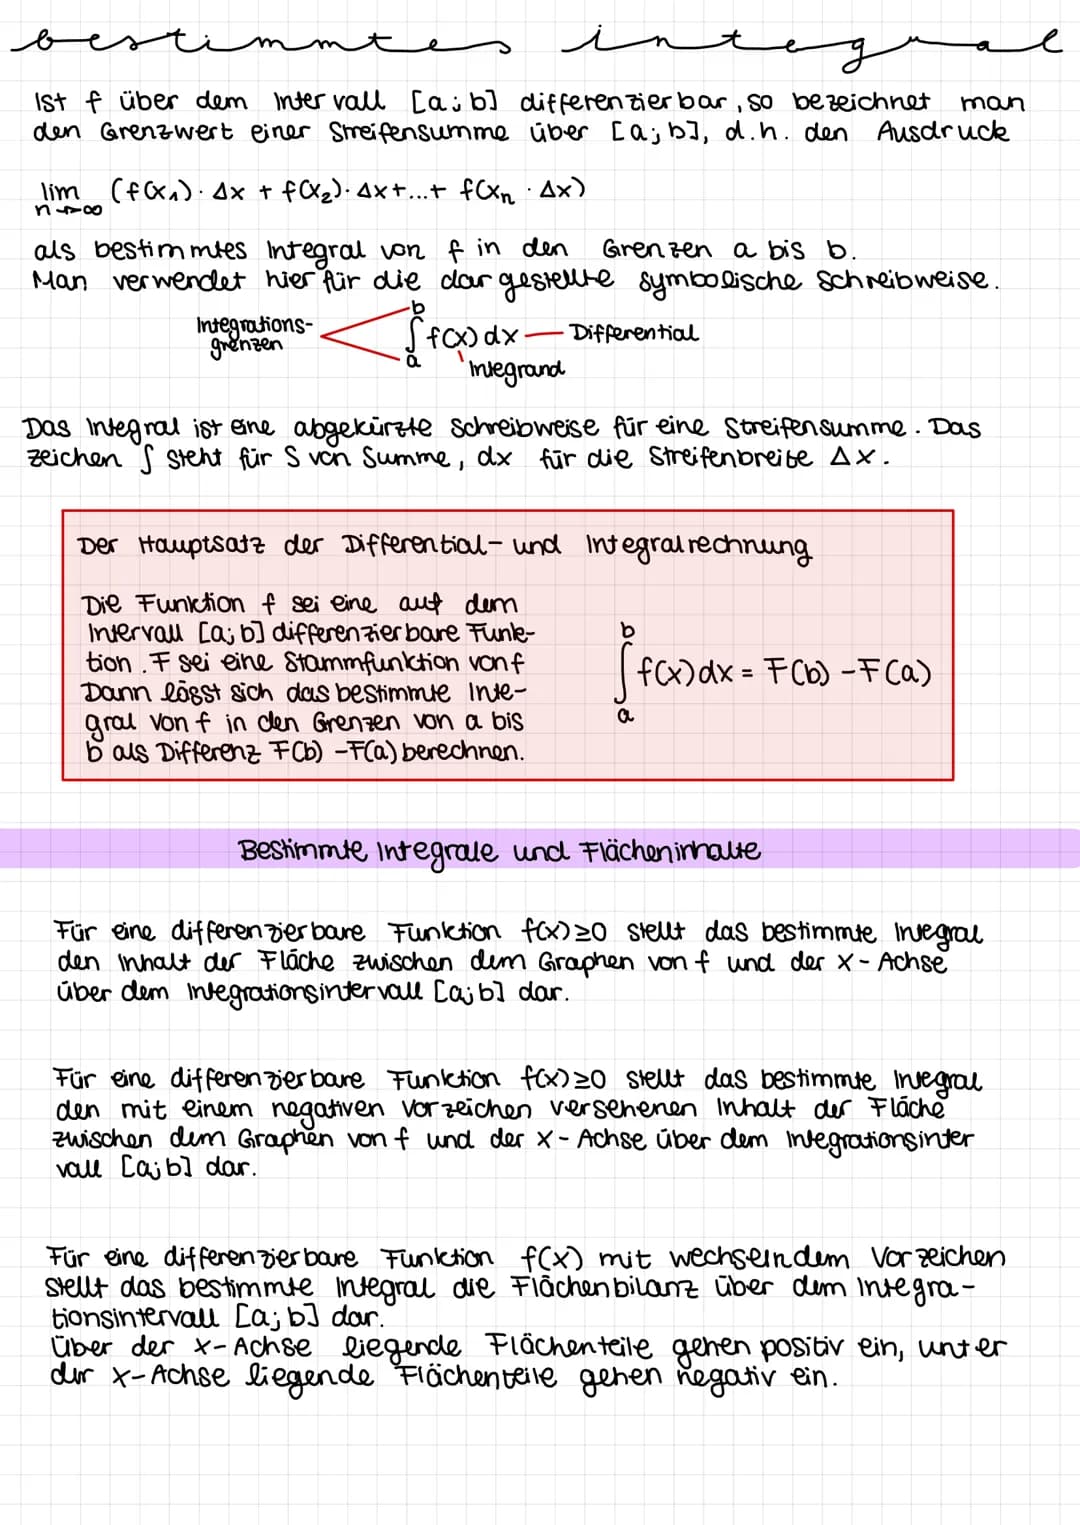 bestimmtes integral
Ist f über dem Intervall [a;b] differenzierbar, so bezeichnet man
den Grenzwert einer Streifensumme über [a;b], d.h. den Ausdruck
lim (f(x₁)·Δx + f(x₂)·Δx+...+ f(xₙ · Δx)
n→∞
als bestimmtes Integral von f in den Grenzen a bis b.
Man verwendet hier für die dargestellte symbolische Schreibweise.
Integrations-
grenzen
b
∫ f(x) dx — Differential
a
Integrand
Das Integral ist eine abgekürzte Schreibweise für eine Streifensumme. Das
zeichen ∫ steht für S von Summe, dx für die Streifenbreite Δx.
Der Hauptsatz der Differential- und Integralrechnung
Die Funktion f sei eine auf dem
Intervall [a;b] differenzierbare Funk-
tion. F sei eine Stammfunktion von f
Dann lässt sich das bestimmte Inte-
gral von f in den Grenzen von a bis
b als Differenz F(b) -F(a) berechnen.
b
∫ f(x)dx = F(b) -F(a)
a
Bestimmte Integrale und Flächeninhalte
Für eine differenzierbare Funktion f(x)≥0 stellt das bestimmte Integral
den Inhalt der Fläche zwischen dem Graphen von f und der x-Achse
über dem Integrationsintervall [a;b] dar.
Für eine differenzierbare Funktion f(x)≥0 stellt das bestimmte Integral
den mit einem negativen Vorzeichen versehenen Inhalt der Fläche
zwischen dem Graphen von f und der x-Achse über dem Integrationsinter
vall [a;b] dar.
Für eine differenzierbare Funktion f(x) mit wechselndem Vorzeichen
stellt das bestimmte Integral die Flächenbilanz über dem Integra-
tionsintervall [a;b] dar.
Über der x-Achse liegende Flächenteile gehen positiv ein, unter
der x-Achse liegende Flächenteile gehen negativ ein.